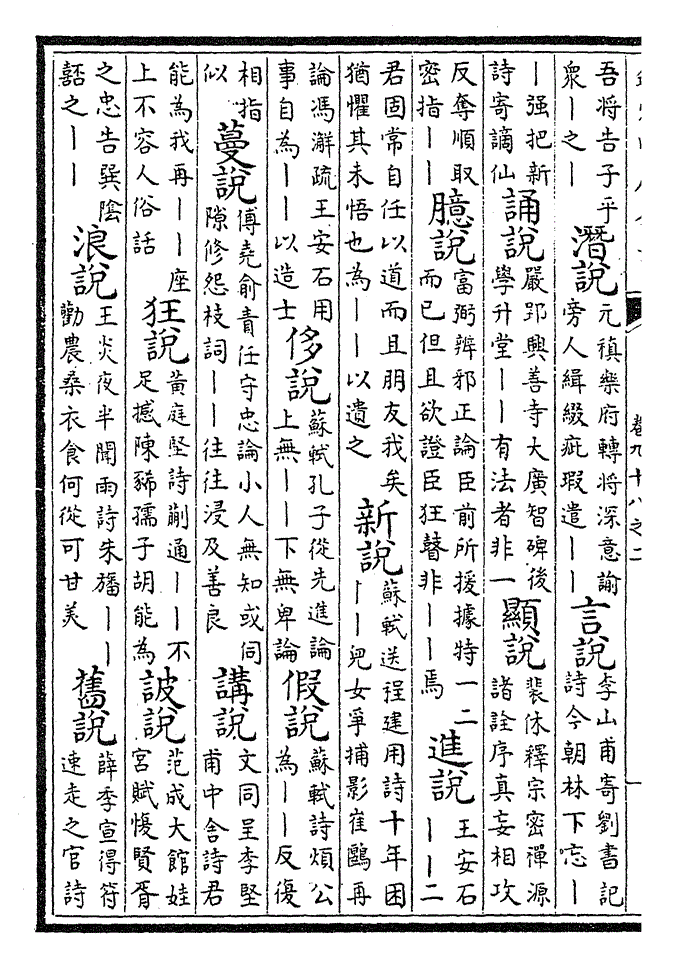 卷九十八之二
吾将告子乎
衆｜之｜
潛說
元禛樂府轉将深意諭
旁人緝綴疵瑕遣｜｜
言說
李山甫寄劉書記
詩今朝林下忘｜
｜强把新
詩寄謫仙
誦說
嚴郢興善寺大廣智碑後
學升堂｜｜有法者非一
顯說
裴休釋宗密禪源
諸詮序真妄相攻
反奪順取
密指｜｜
臆說
富弼辨邪正論臣前所援據特一二
而已但且欲證臣狂瞽非｜｜焉
進說
王安石
｜｜二
君固常自任以道而且朋友我矣
猶懼其未悟也為｜｜以遺之
新說
蘇軾送程建用詩十年困
｜｜兒女爭捕影崔鷗再
論馮澥疏王安石用
事自為｜｜以造士
侈說
蘇軾孔子從先進論
上無｜｜下無卑論
假說
蘇軾詩煩公
為｜｜反復
相指
似
蔓說
傅堯俞責任守忠論小人無知或伺
隙修怨枝詞｜｜往往浸及善良
講說
文同呈李堅
甫中舍詩君
能為我再｜｜座
上不容人俗話
狂說
黃庭堅詩蒯通｜｜不
足撼陳豨孺子胡能為
詖說
范成大館娃
宮賦愎賢胥
之忠告巽陰
嚭之｜｜
浪說
王炎夜半聞雨詩朱旛｜｜
勸農桑衣食何從可甘美
舊說
薛季宣得符
速走之官詩